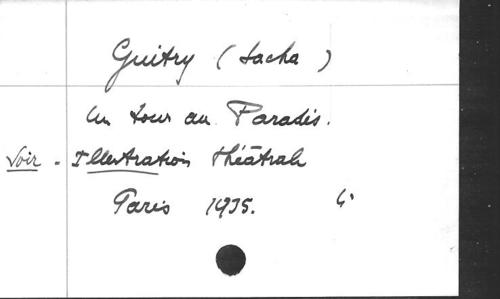 Guitry (Sacha)
Un tour au Paradis.
Voir - Illustration théâtrale
Paris 1935. 4°